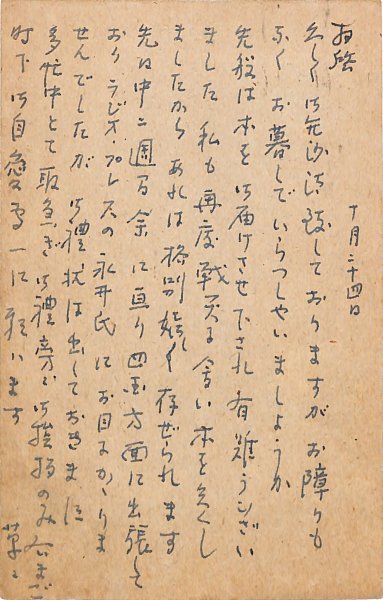 拝啓
十月二十四日
久しく御無沙汰致しておりますがお障りも
なくお暮しでいらつしやいましようか
先般は本を御届けさせ下され有難うござい
ました 私も再度戦災に会い本を失くし
ましたから あれは格別嬉しく存ぜられます
先日中二週間余に亘り四国方面に出張して
おりラジオ・プレスの永井氏にお目にかゝりま
せんでしたが御禮状は出しておきました
多忙中とて取急ぎ御禮旁々御挨拶のみ
時下御自愛専一に祈います
草々